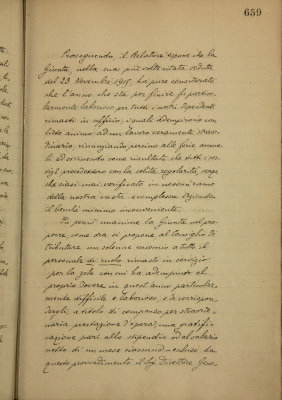 659
Proseguendo, il Relatore espone che la
Giunta, nella sua più volte citata seduta
del 23 Novembre 1915, ha pure considerato
che l'anno che sta per finire fu partico-
larmente laborioso per tutti i nostri dipendenti
rimasti in ufficio, i quali adempirono con
lieto animo ad un lavoro veramente straor-
dinario, rinunziando persino alle ferie annua-
li ed ottenendo come risultato che tutti i ser-
vizi procedessero con la solita regolarità, senza
che siasi mai verificato in nessun ramo
della nostra vasta e complessa Azienda
il benchè minimo inconveniente.
Fu perciò unanime la Giunta nel pro-
porre, come ora si propone al Consiglio di
tributare un solenne encomio a tutto il
personale di ruolo rimasto in servizio
per lo zelo con cui ha adempiuto al
proprio dovere in quest'anno particolar-
mente difficile e laborioso, e di corrispon-
dergli, a titolo di compenso per straordi-
naria prestazione d'opera, una gratifi-
cazione pari allo stipendio od al salario
netto di un mese ciascuno - escluso da
questo provvedimento il Sig. Direttore Gene-